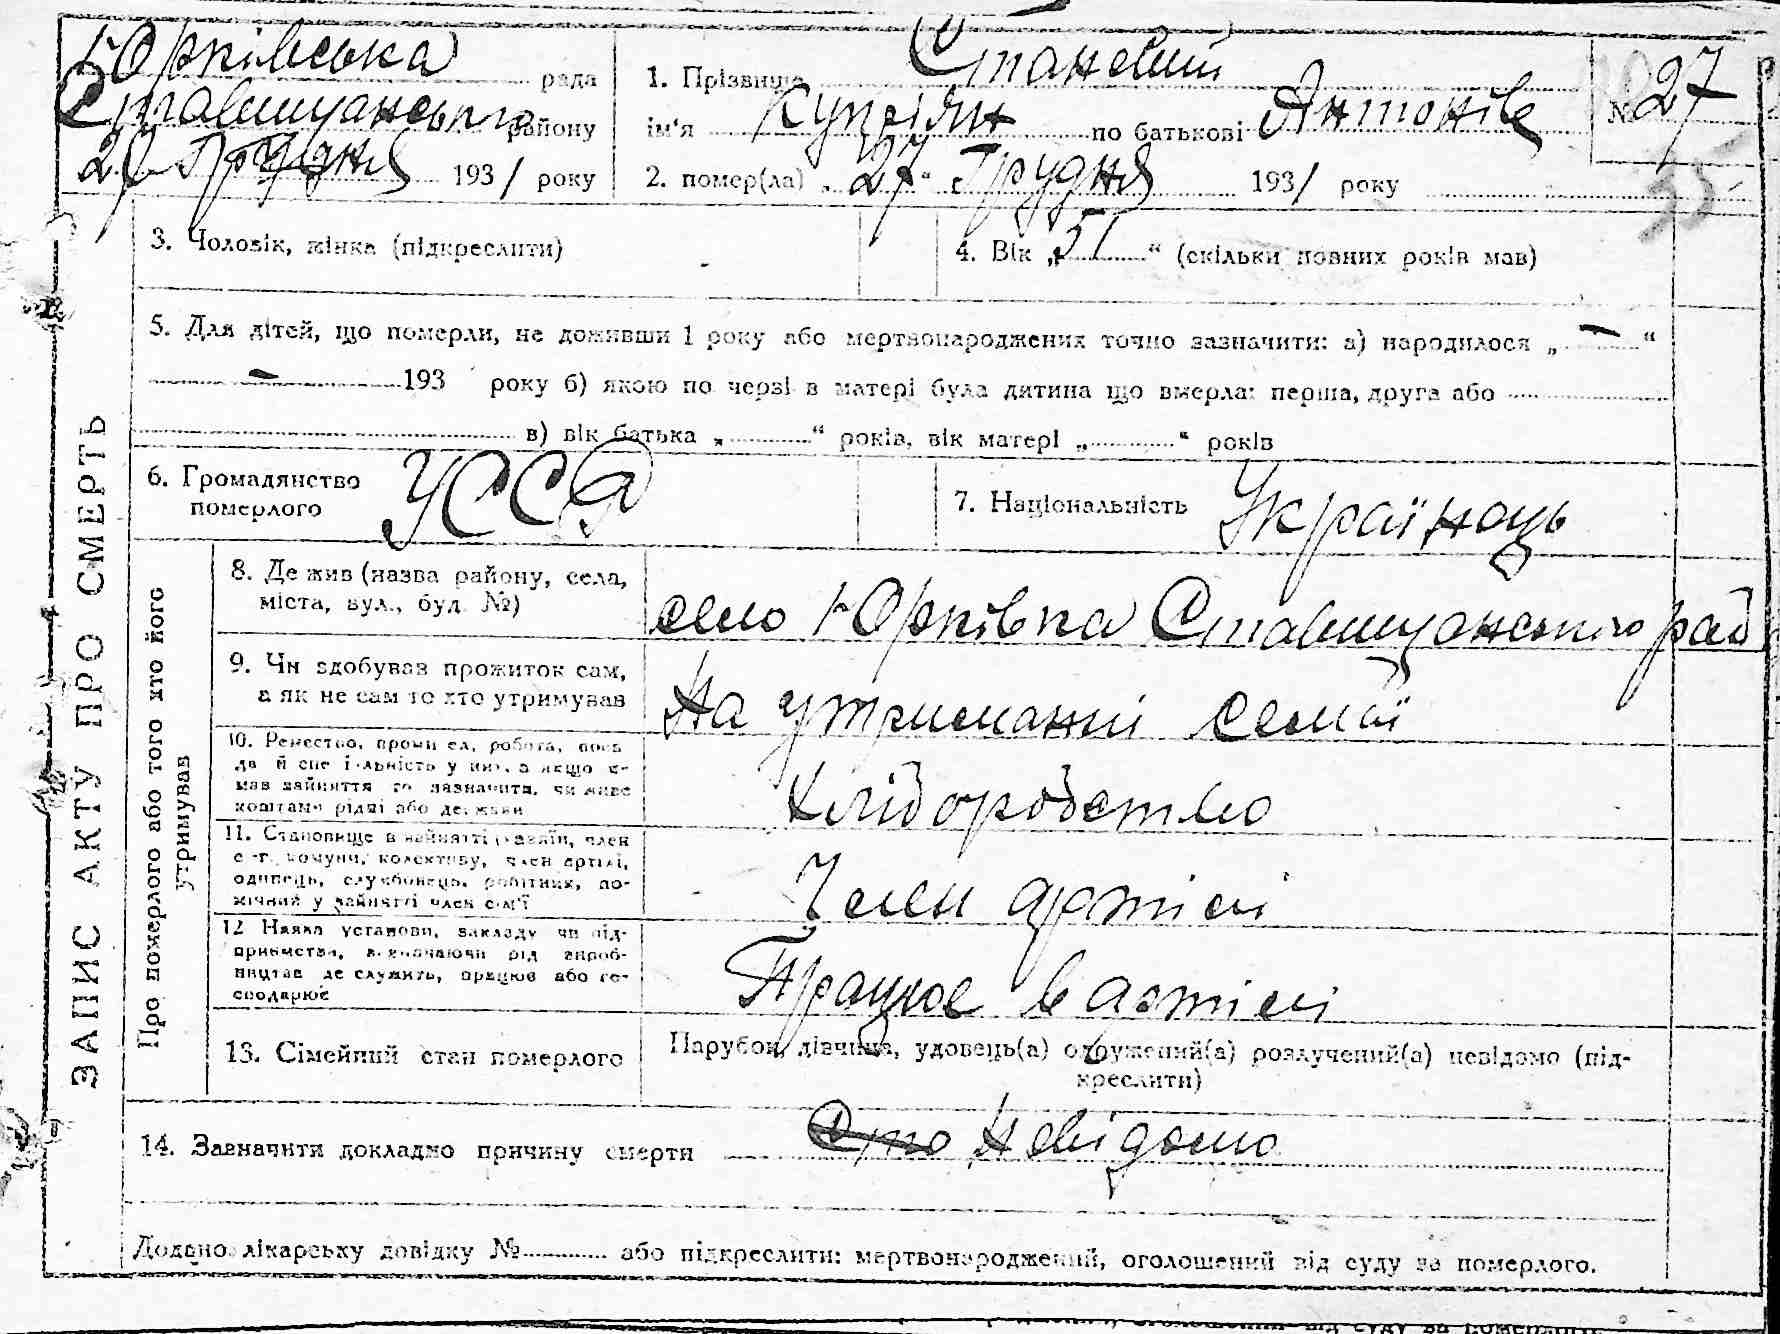 Юрківська рада
Ставищанського району
29 Грудня 1931 року
1. Прізвище Становий
ім'я Купріян по батькові Антонів
2. помер(ла) „27“ Грудня 1931 року
№ 27
35
3. Чоловік, жінка (підкреслити)
4. Вік „51“ (скільки повних років мав)
5. Для дітей, що померли, не доживши 1 року або мертвонароджених точно зазначити: а) народилося „ — “
— 193 року б) якою по черзі в матері була дитина що вмерла: перша, друга або
в) вік батька „ “ років, вік матері „ “ років
6. Громадянство
померлого УССР
7. Національність Українець
ЗАПИС АКТУ ПРО СМЕРТЬ
Про померлого або того хто його
утримував
8. Де жив (назва району, села,
міста, вул., буд. №)
село Юрківка Ставищанського рай
9. Чи здобував прожиток сам,
а як не сам то хто утримував
На утриманні семії
10. Ремество, промисел, робота, поса-
да й спеціяльність у них, а якщо не
мав зайняття то зазначити, чи живе
коштами рідні або держави
Хліборобство
11. Становище в зайнятті (хазяїн, член
с.-г. комуни, колективу, член артілі,
одинець, службовець, робітник, по-
мічний у зайнятті член сім'ї
Член артілі
12 Назва установи, закладу чи під-
приємства, визначаючи рід вироб-
ництва де служить, працює або го-
сподарює
Працює в артілі
13. Сімейний стан померлого
Парубок, дівчина, удовець(а) одружений(а) розлучений(а) невідомо (під-
креслити)
14. Зазначити докладно причину смерти Невідомо
Додано лікарську довідку № або підкреслити: мертвонароджений, оголошений від суду за померлого.